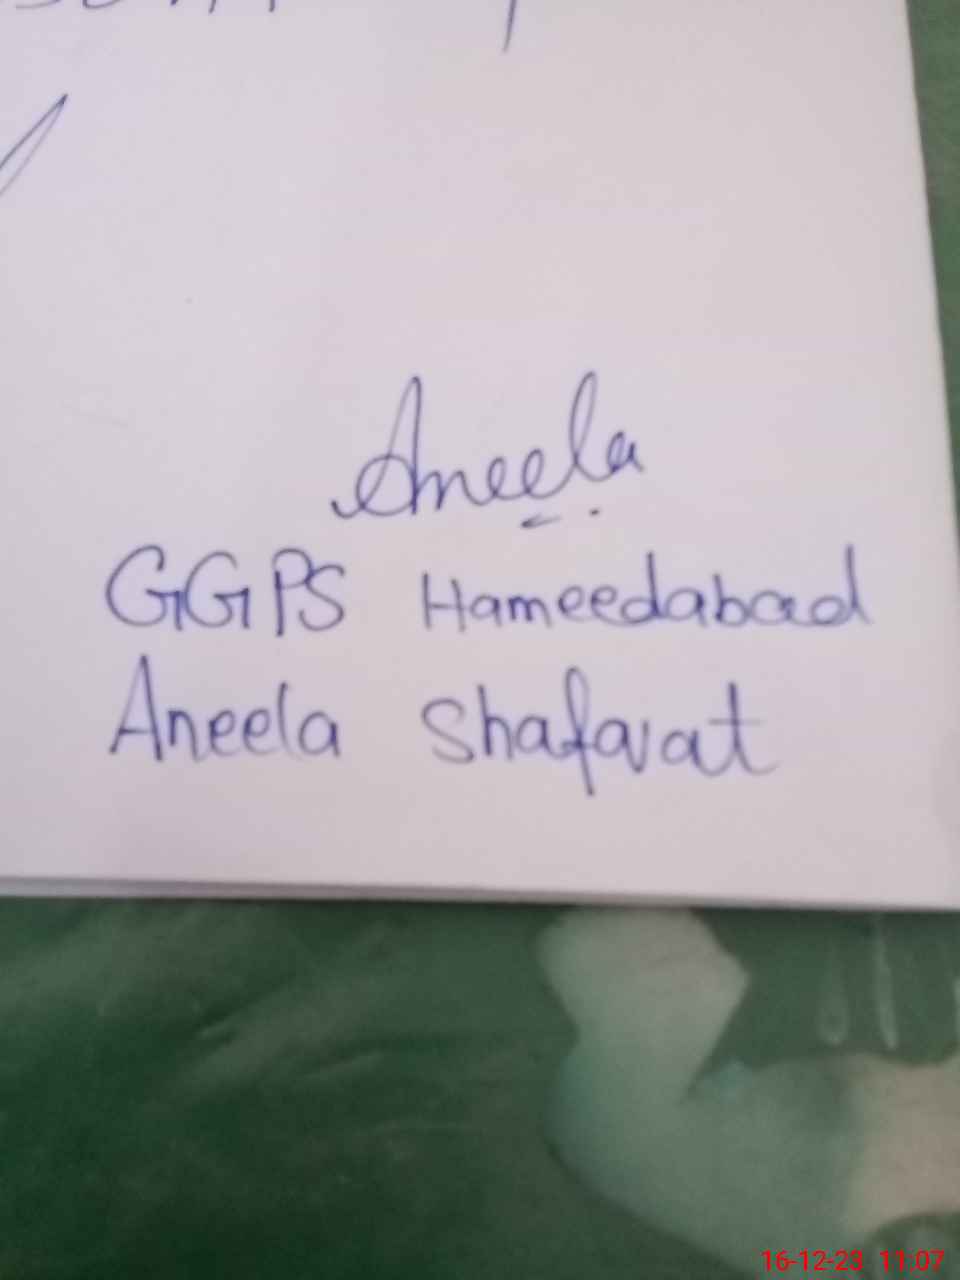 Aneela
GGPS Hameedabad
Aneela Shafavat
16-12-23 11:07